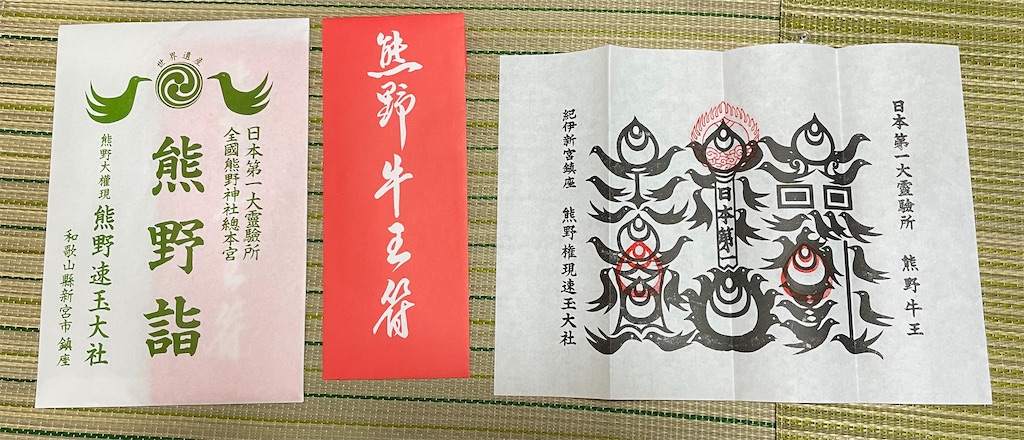 世界遺産
日本第一大靈驗所
全國熊野神社總本宮
熊野詣
熊野大權現
熊野速玉大社
和歌山縣新宮市鎮座
熊野牛王符
日本第一大靈驗所
熊野牛王
日本第一
紀伊新宮鎮座
熊野権現速玉大社